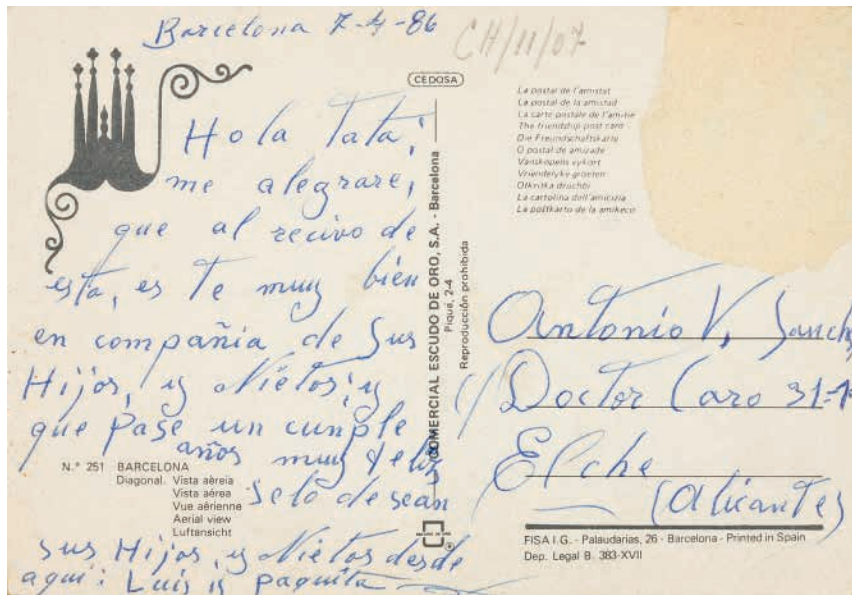 Barcelona 7-4-86
CH/11/07
CEDOSA
Hola Tata;
me alegrare,
que al recivo de
esta, es te muy bien
en compañia de Sus
Hijos, y Nietos; y
que Pase un cumple
años muy feliz
se lo desean
sus Hijos, y Nietos desde
aqui: Luis y paquita
N.° 251 BARCELONA
Diagonal. Vista aèreia
Vista aérea
Vue aérienne
Aerial view
Luftansicht
COMERCIAL ESCUDO DE ORO, S.A. - Barcelona
Piqué, 2-4
Reproducción prohibida
La postal de l'amistat
La postal de la amistad
La carte postale de l'amitié
The friendship post card
Die Freundschaftskarte
O postal de amizade
Vanskapens vykort
Vriendelyke groeten
Otkritka druchbi
La cartolina dell'amicizia
La poŝtkarto de la amikeco
Antonio V. Sanchez
C/ Doctor Caro 31-1
Elche
(Alicante)
FISA I.G. - Palaudarias, 26 - Barcelona - Printed in Spain
Dep. Legal B. 383-XVII